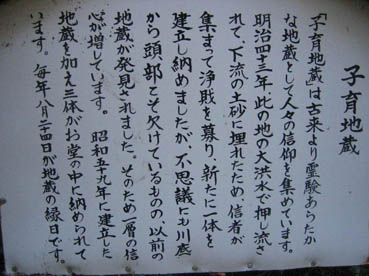 子育地蔵
「子育地蔵」は古来より霊験あらたか
な地蔵として人々の信仰を集めています。
明治四十三年、此の地の大洪水で押し流さ
れて、下流の土砂に埋れたため、信者が
集まって浄財を募り、新たに一体を
建立し納めましたが、不思議にも川底
から頭部こそ欠けているものの、以前の
地蔵が発見されました。そのため一層の信
心が増しています。 昭和五十七年に建立した
地蔵を加え三体がお堂の中に納められて
います。毎年八月二十四日が地蔵の縁日です。